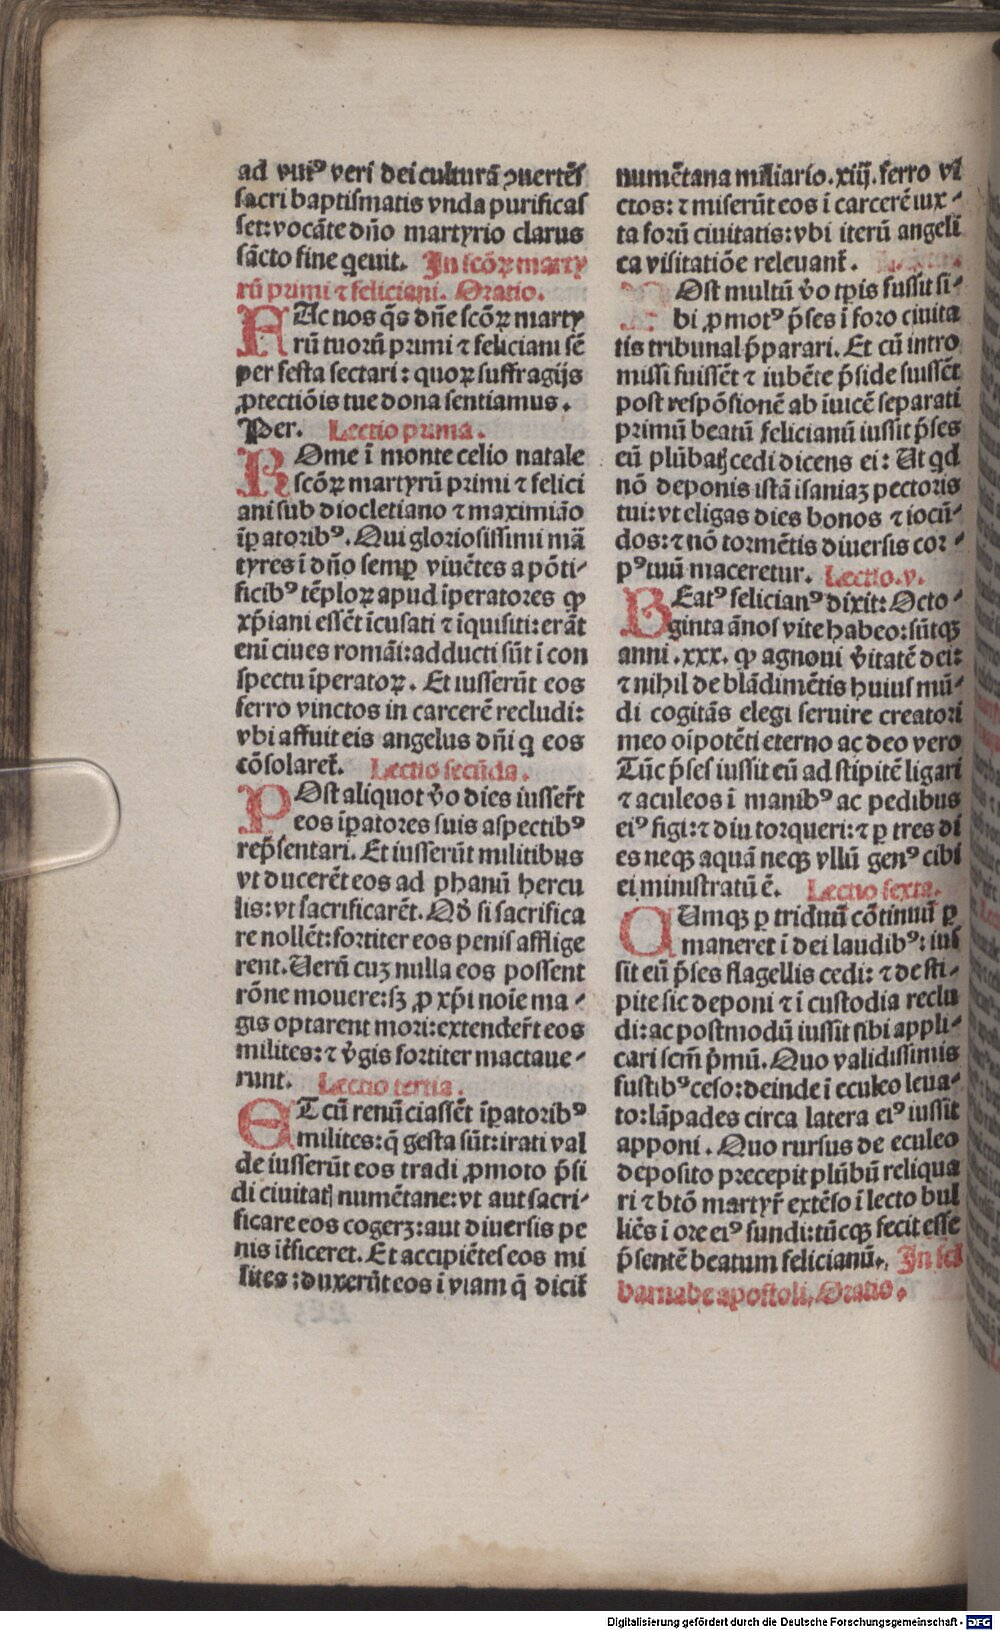 ad vniꝰ veri dei culturā ↄuertēs
sacri baptismatis vnda purificas
set: vocāte dño martyrio clarus
sācto fine qeuit. In scōꝝ marty
rū primi ⁊ feliciani. Oratio.
FAc nos q̄s dñe scōꝝ marty
rū tuorū primi ⁊ feliciani sē
per festa sectari: quoꝝ suffragijs
ꝓtectiōis tue dona sentiamus.
Per. Lectio prima.
ROme ī monte celio natale
scōꝝ martyrū primi ⁊ felici
ani sub diocletiano ⁊ maximiāo
īꝑatoribꝰ. Qui gloriosissimi mā
tyres ī dño semꝑ viuētes a pōti-
ficibꝰ tēploꝝ apud īperatores ꝙ
xp̄iani essēt īcusati ⁊ īquisiti: erāt
eni ciues romāi: adducti sūt ī con
spectu īperatoꝝ. Et iusserūt eos
ferro vinctos in carcerē recludi:
vbi affuit eis angelus dñi q̇ eos
cōsolaret̄. Lectio secūda.
POst aliquot v̄o dies iusser̄t
eos īꝑatores suis aspectibꝰ
rep̄sentari. Et iusserūt militibus
vt ducerēt eos ad phanū hercu
lis: vt sacrificarēt. Qđ si sacrifica
re nollēt: fortiter eos penis afflige
rent. Uerū cuꝫ nulla eos possent
rōne mouere: sꝫ ꝓ xp̄i noīe ma-
gis optarent mori: extender̄t eos
milites: ⁊ v̄gis fortiter mactaue-
runt. Lectio tertia.
ET cū renūciassēt īꝑatoribꝰ
milites: q̄ gesta sūt: irati val
de iusserūt eos tradi ꝓmoto p̄si
di ciuitatꝭ numētane: vt aut sacri-
ficare eos cogerꝫ: aut diuersis pe
nis īt̄ficeret. Et accipiētes eos mi
lites: duxerūt eos ī viam q̄ dicit̄
numētana miliario. xiiij. ferro vī
ctos: ⁊ miserūt eos ī carcerē iux-
ta forū ciuitatis: vbi iterū angeli
ca visitatiōe releuant̄.
POst multū v̄o tꝑis iussit si-
bi ꝓmotꝰ p̄ses ī foro ciuita
tis tribunal p̄parari. Et cū intro
missi fuissēt ⁊ iubēte p̄side fuissēt
post respōsionē ab īuicē separati
primū beatū felicianū iussit p̄ses
eū plūbatꝭ cedi dicens ei: Ut qd
nō deponis istā īsaniaꝫ pectoris
tui: vt eligas dies bonos ⁊ iocū-
dos: ⁊ nō tormētis diuersis cor-
pꝰ tuū maceretur. Lectio. v.
BEatꝰ felicianꝰ dixit: Octo-
ginta ānos vite habeo: sūtqꝫ
anni. xxx. ꝙ agnoui v̄itatē dei:
⁊ nihil de blādimētis huius mū-
di cogitās elegi seruire creatori
meo oīpotēti eterno ac deo vero
Tūc p̄ses iussit eū ad stipitē ligari
⁊ aculeos ī manibꝰ ac pedibus
eiꝰ figi: ⁊ diu torqueri: ⁊ ꝑ tres di
es neqꝫ aquā neqꝫ vllū genꝰ cibi
ei ministratū ē. Lectio sexta.
CUmqꝫ ꝑ triduū cōtinuū ꝑ
maneret ī dei laudibꝰ: ius
sit eū p̄ses flagellis cedi: ⁊ de sti-
pite sic deponi ⁊ ī custodia reclu
di: ac postmodū iussit sibi appli-
cari scm̄ p̄mū. Quo validissimis
fustibꝰ ceso: deinde ī eculeo leua-
to: lāpades circa latera eiꝰ iussit
apponi. Quo rursus de eculeo
deposito precepit plūbū reliqua
ri ⁊ btō martyr̄ extēso ī lecto bul
liēs ī ore eiꝰ fundi: tūcqꝫ fecit esse
p̄sentē beatum felicianū. In fest
barnabe apostoli. Oratio.
Digitalisierung gefördert durch die Deutsche Forschungsgemeinschaft - DFG